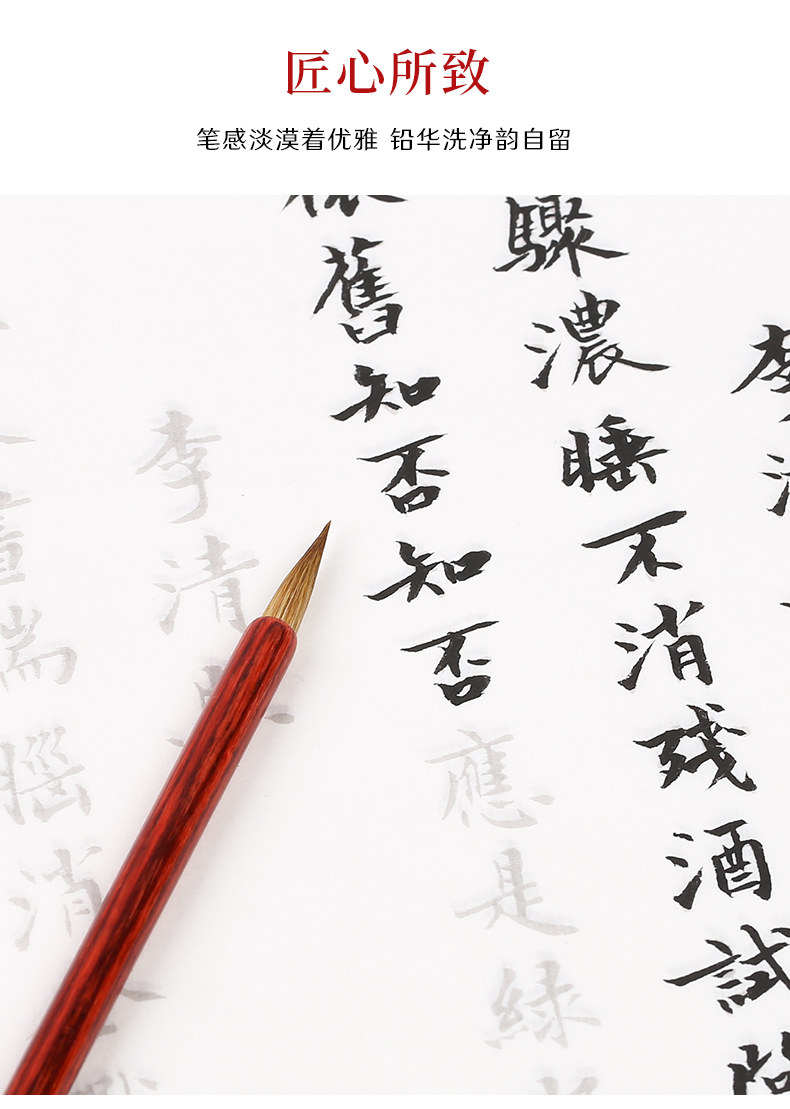 匠心所致
笔感淡漠着优雅 铅华洗净韵自留
李
驟濃睡不消残酒試問
舊知否知否應是綠
李清
晝瑞腦消